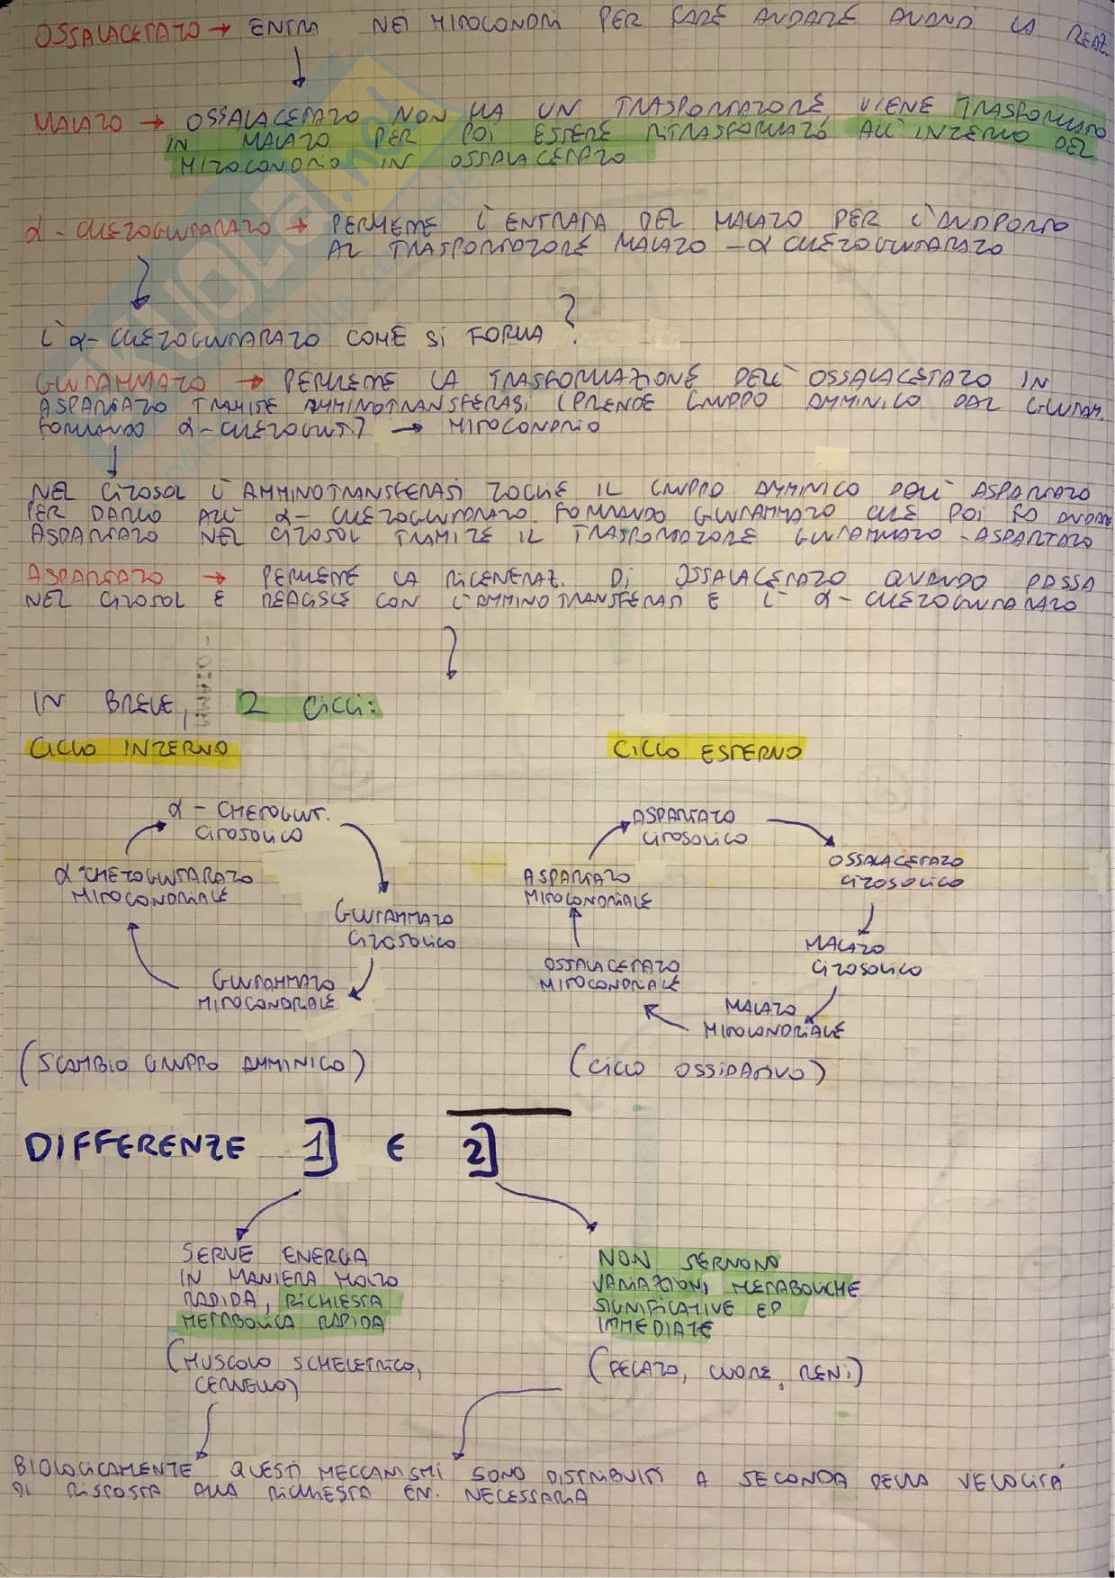 OSSALACETATO → ENTRA NEI MITOCONDRI PER FARE ANDARE AVANTI LA REAZ.
MALATO → OSSALACETATO NON HA UN TRASPORTATORE, VIENE TRASFORMATO
IN MALATO PER POI ESSERE RITRASFORMATO ALL'INTERNO DEL
MITOCONDRIO IN OSSALACETATO
α-CHETOGLUTARATO → PERMETTE L'ENTRATA DEL MALATO PER L'ANTIPORTO
AL TRASPORTATORE MALATO - α CHETOGLUTARATO
L'α-CHETOGLUTARATO COME SI FORMA?
GLUTAMMATO → PERMETTE LA TRASFORMAZIONE DELL'OSSALACETATO IN
ASPARTATO TRAMITE AMMINOTRANSFERASI (PRENDE GRUPPO AMMINICO DAL GLUTAM.
FORMANDO α-CHETOGLUT.) → MITOCONDRIO
NEL CITOSOL L'AMMINOTRANSFERASI TOGLIE IL GRUPPO AMMINICO DELL'ASPARTATO
PER DARLO ALL'α-CHETOGLUTARATO FORMANDO GLUTAMMATO CHE POI FA ANDARE
ASPARTATO NEL CITOSOL TRAMITE IL TRASPORTATORE GLUTAMMATO-ASPARTATO
ASPARTATO → PERMETTE LA RIGENERAZ. DI OSSALACETATO QUANDO PASSA
NEL CITOSOL E REAGISCE CON L'AMMINOTRANSFERASI E L'α-CHETOGLUTARATO
IN BREVE, 2 CICLI:
CICLO INTERNO CICLO ESTERNO
α-CHETOGLUT.
CITOSOLICO
GLUTAMMATO
CITOSOLICO
GLUTAMMATO
MITOCONDRIALE
α CHETOGLUTARATO
MITOCONDRIALE
(SCAMBIO GRUPPO AMMINICO)
ASPARTATO
CITOSOLICO
OSSALACETATO
CITOSOLICO
MALATO
CITOSOLICO
MALATO
MITOCONDRIALE
OSSALACETATO
MITOCONDRIALE
ASPARTATO
MITOCONDRIALE
(CICLO OSSIDATIVO)
DIFFERENZE 1] E 2]
SERVE ENERGIA
IN MANIERA MOLTO
RAPIDA, RICHIESTA
METABOLICA RAPIDA
(MUSCOLO SCHELETRICO,
CERVELLO)
NON SERVONO
VARIAZIONI METABOLICHE
SIGNIFICATIVE ED
IMMEDIATE
(FEGATO, CUORE, RENI)
BIOLOGICAMENTE QUESTI MECCANISMI SONO DISTRIBUITI A SECONDA DELLA VELOCITÀ
DI RISPOSTA ALLA RICHIESTA EN. NECESSARIA